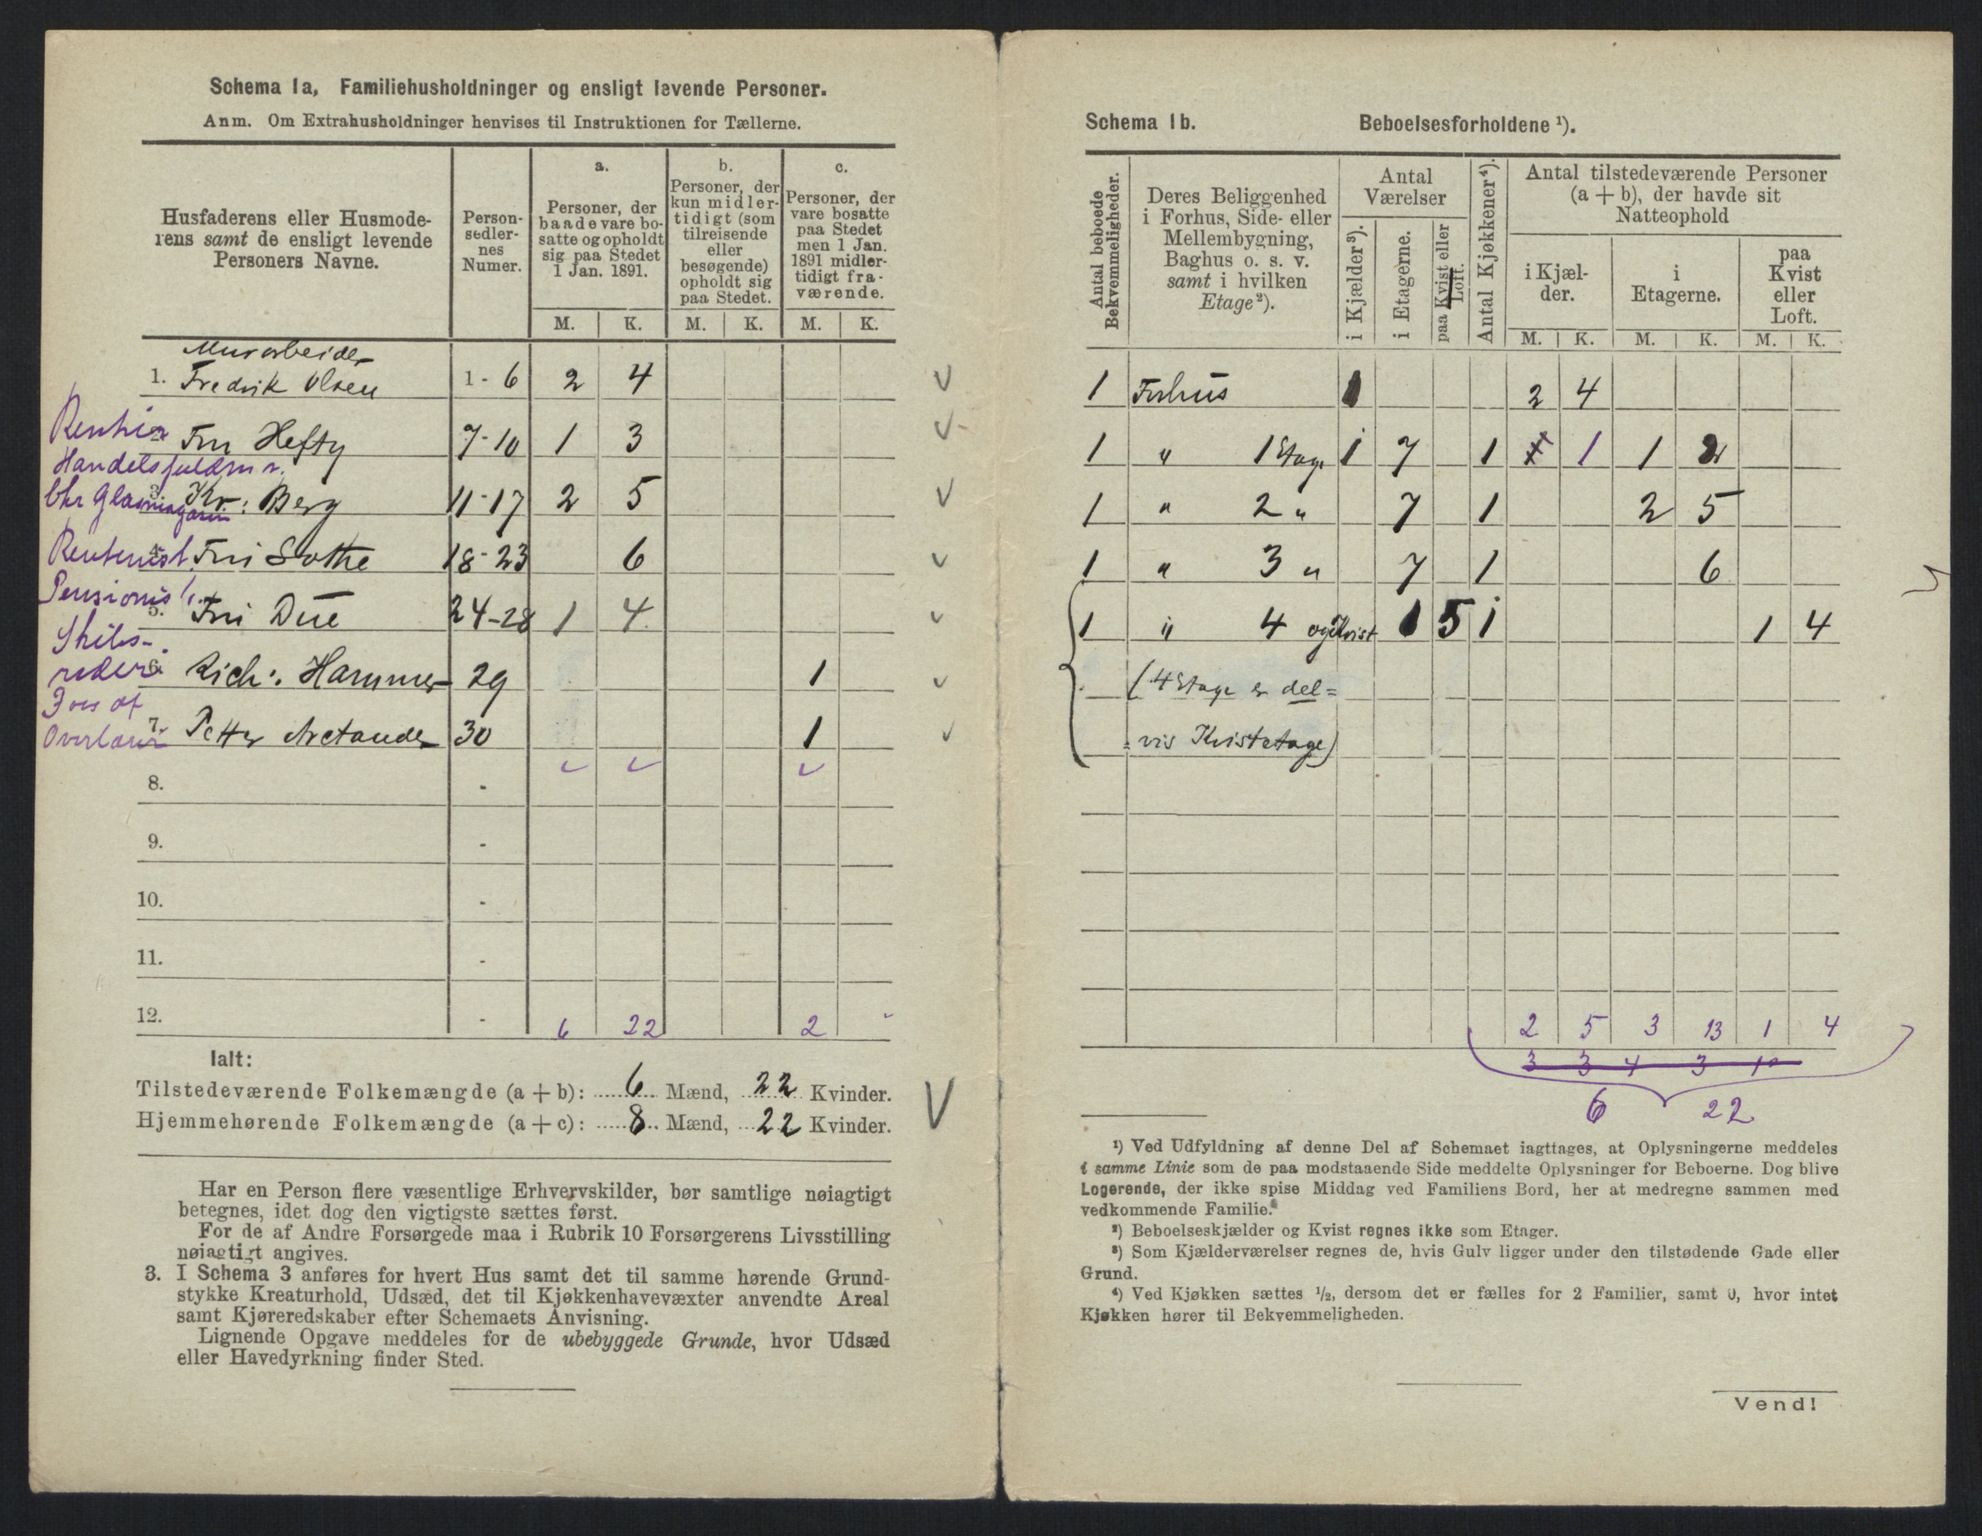 Schema 1a, Familiehusholdninger og ensligt levende Personer.
Anm. Om Extrahusholdninger henvises til Instruktionen for Tællerne.
Husfaderens eller Husmode-
rens samt de ensligt levende
Personers Navne.
Person-
sedler-
nes
Numer.
a.
Personer, der
baade vare bo-
satte og opholdt
sig paa Stedet
1 Jan. 1891.
b.
Personer, der
kun midler-
tidigt (som
tilreisende
eller
besøgende)
opholdt sig
paa Stedet.
c.
Personer, der
vare bosatte
paa Stedet
men 1 Jan.
1891 midler-
tidigt fra-
værende.
M. K. M. K. M. K.
Murarbeider
1. Fredrik Olsen 1 - 6 2 4
2. Fru Hefty 7-10 1 3
Handelsfuldm.
3. Kr: Berg 11-17 2 5
4. Fru Sothe 18-23 6
Pensionist.
5. Fru Due 24-28 1 4
Skibs-
reder
6. Rich: Hammer 29 1
7. Petter Arctander 30 1
8. -
9. -
10. -
11. -
12. - 6 22 2
Ialt:
Tilstedeværende Folkemængde (a + b): 6 Mænd, 22 Kvinder.
Hjemmehørende Folkemængde (a + c): 8 Mænd, 22 Kvinder.
Har en Person flere væsentlige Erhvervskilder, bør samtlige nøiagtigt
betegnes, idet dog den vigtigste sættes først.
For de af Andre Forsørgede maa i Rubrik 10 Forsørgerens Livsstilling
nøiagtigt angives.
3. I Schema 3 anføres for hvert Hus samt det til samme hørende Grund-
stykke Kreaturhold, Udsæd, det til Kjøkkenhavevæxter anvendte Areal
samt Kjøreredskaber efter Schemaets Anvisning.
Lignende Opgave meddeles for de ubebyggede Grunde, hvor Udsæd
eller Havedyrkning finder Sted.
Schema 1b. Beboelsesforholdene ¹).
Antal beboede
Bekvemmeligheder.
Deres Beliggenhed
i Forhus, Side- eller
Mellembygning,
Baghus o. s. v.
samt i hvilken
Etage²).
Antal
Værelser
i Kjælder³).
i Etagerne.
paa Kvist eller
Loft.
Antal Kjøkkener⁴).
Antal tilstedeværende Personer
(a + b), der havde sit
Natteophold
i Kjæl-
der.
i
Etagerne.
paa
Kvist
eller
Loft.
M. K. M. K. M. K.
1 Forhus 1 2 4
1 " 1 Etage 1 7 1 1 1 2
1 " 2 " 7 1 2 5
1 " 3 " 7 1 6
1 " 4 og Kvist 1 5 1 1 4
(4 Etage er del=
vis Kvistetage)
2 5 3 13 1 4
3 3 4 3 1
6 22
¹) Ved Udfyldning af denne Del af Schemaet iagttages, at Oplysningerne meddeles
i samme Linie som de paa modstaaende Side meddelte Oplysninger for Beboerne. Dog blive
Logerende, der ikke spise Middag ved Familiens Bord, her at medregne sammen med
vedkommende Familie.
²) Beboelseskjælder og Kvist regnes ikke som Etager.
³) Som Kjælderværelser regnes de, hvis Gulv ligger under den tilstødende Gade eller
Grund.
⁴) Ved Kjøkken sættes ½, dersom det er fælles for 2 Familier, samt 0, hvor intet
Kjøkken hører til Bekvemmeligheden.
Vend!